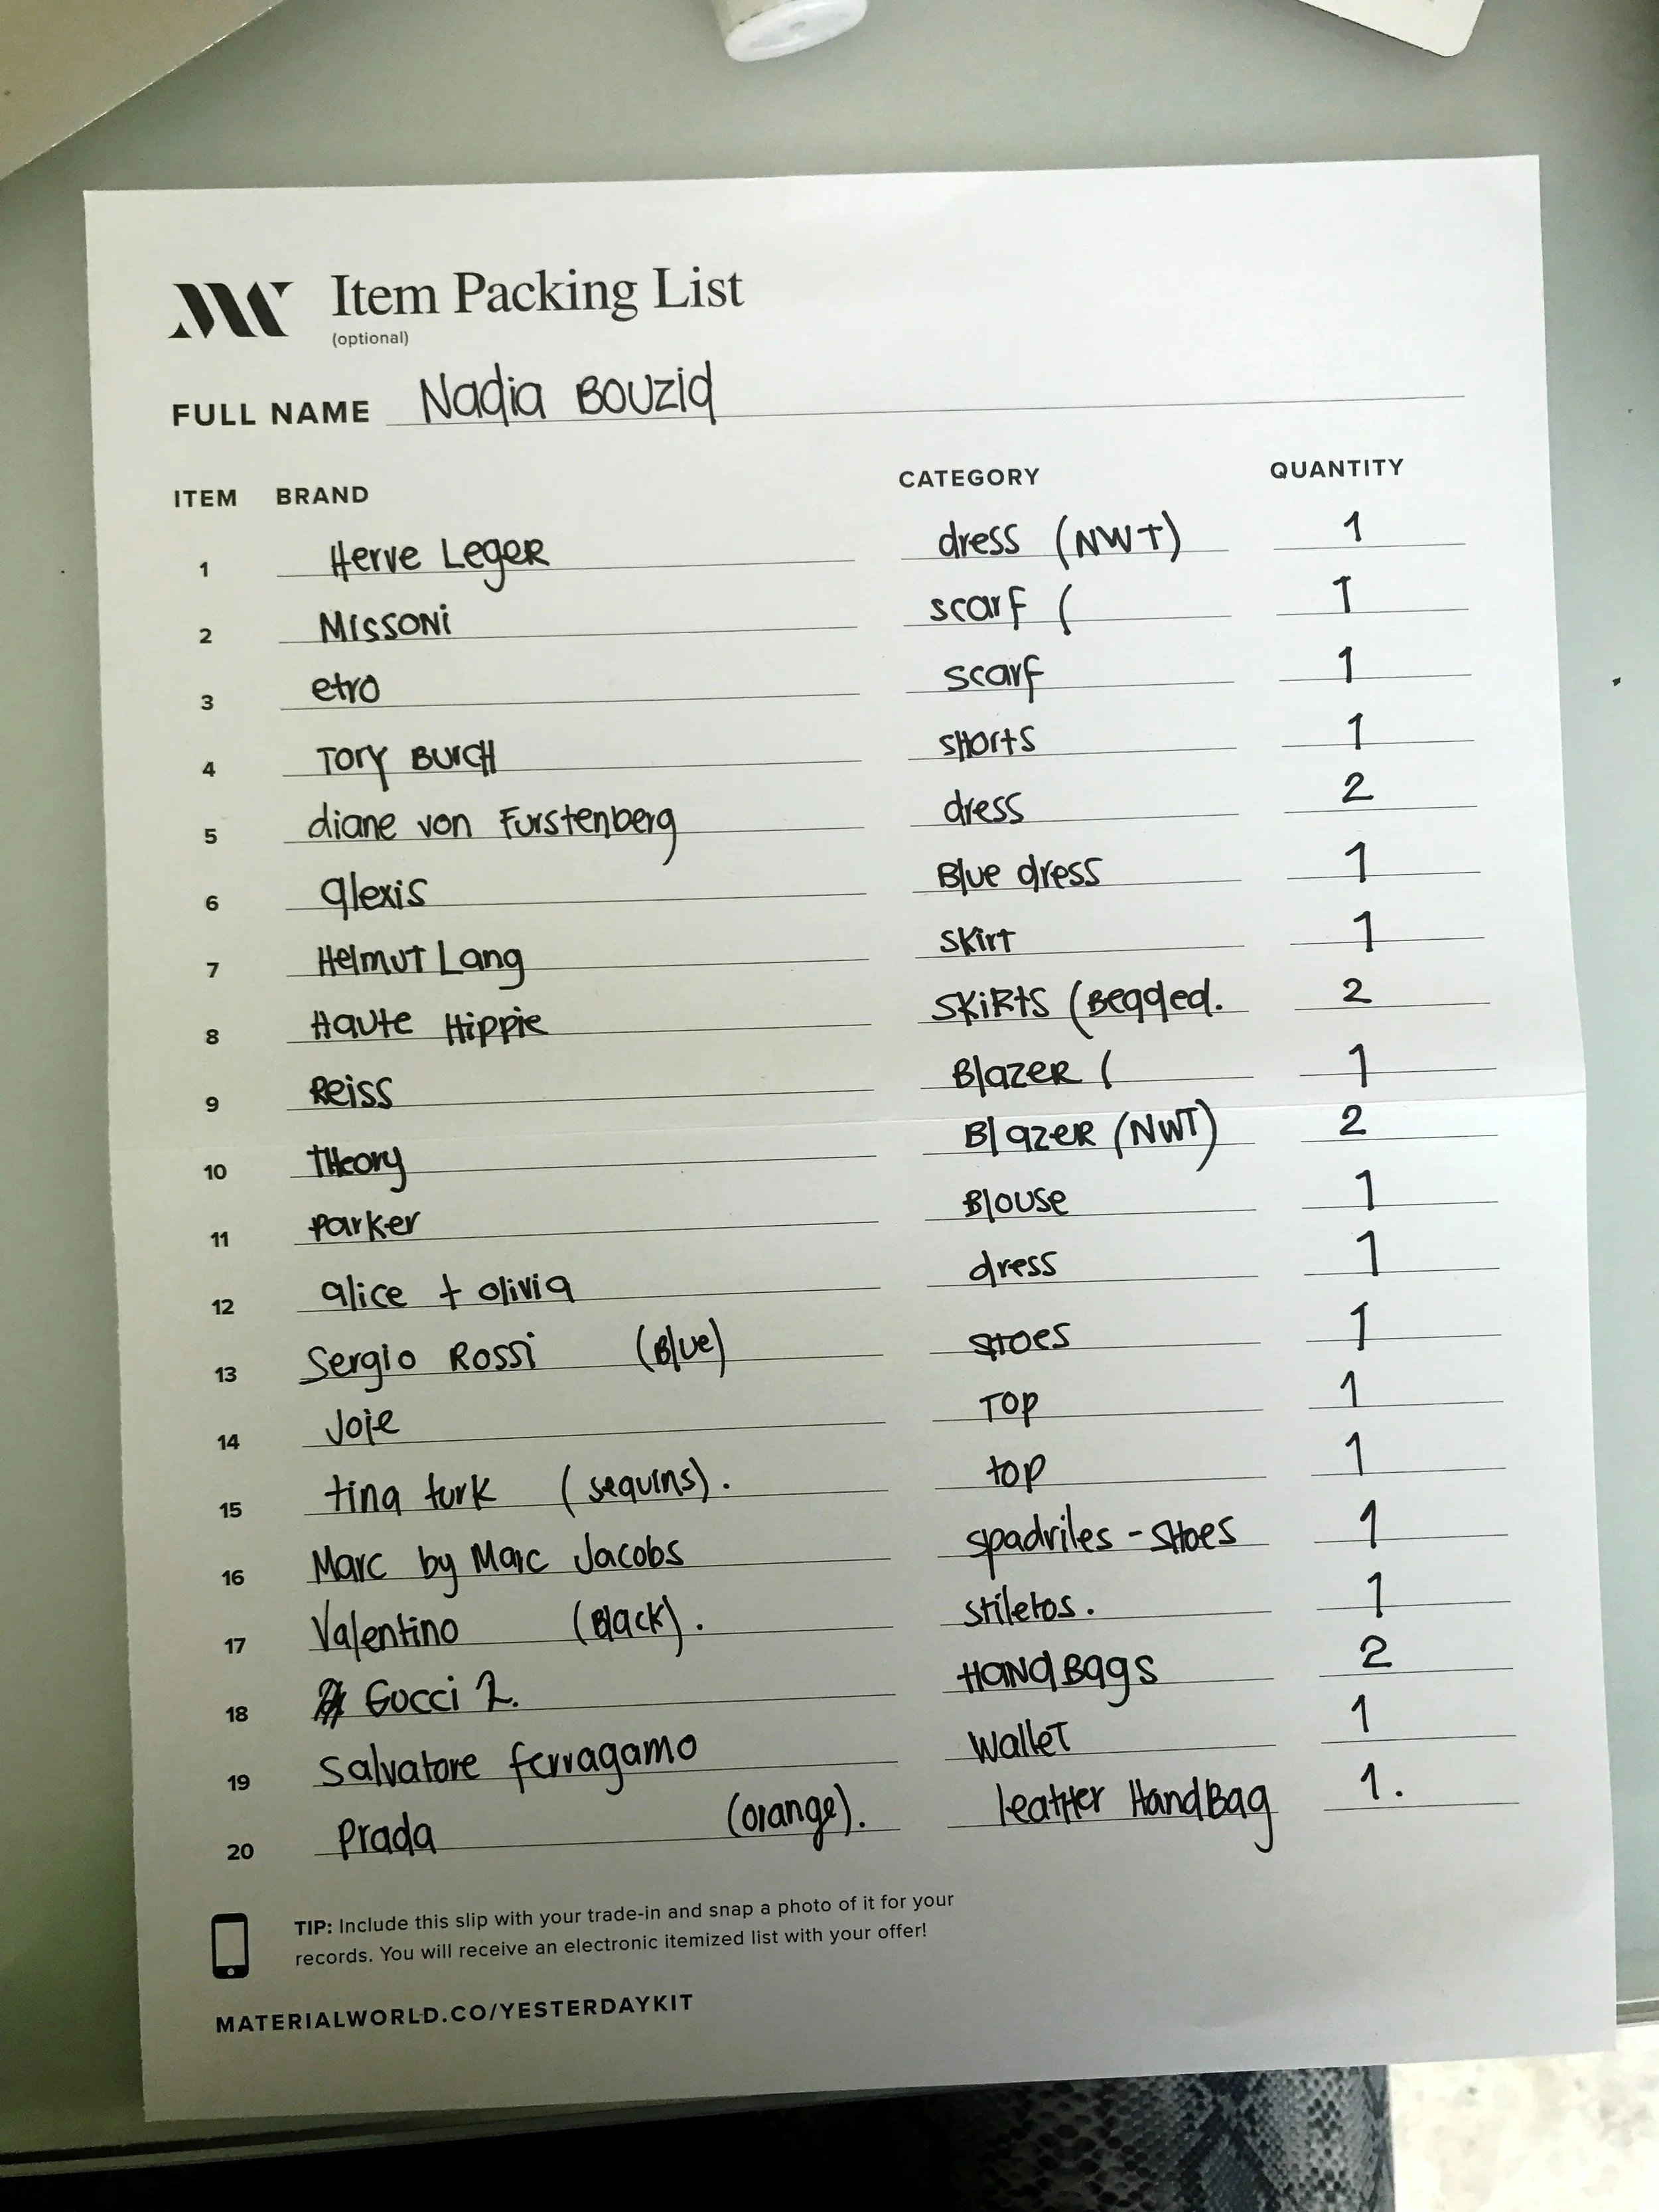 MW Item Packing List
(optional)
FULL NAME Nadia Bouzid
ITEM BRAND CATEGORY QUANTITY
1 Herve Leger dress (NWT) 1
2 Missoni scarf ( 1
3 etro scarf 1
4 Tory Burch shorts 1
5 diane von Furstenberg dress 2
6 alexis Blue dress 1
7 Helmut Lang skirt 1
8 Haute Hippie SKIRTS (Beqded. 2
9 Reiss Blazer ( 1
10 THeory Blazer (NWT) 2
11 parker Blouse 1
12 alice + olivia dress 1
13 Sergio Rossi (Blue) SHoes 1
14 Joie Top 1
15 tina turk (sequins). top 1
16 Marc by Marc Jacobs spadriles - SHoes 1
17 Valentino (Black). stiletos. 1
18 Gucci 2. HandBags 2
19 Salvatore ferragamo Wallet 1
20 Prada (orange). leather HandBag 1.
TIP: Include this slip with your trade-in and snap a photo of it for your
records. You will receive an electronic itemized list with your offer!
MATERIALWORLD.CO/YESTERDAYKIT